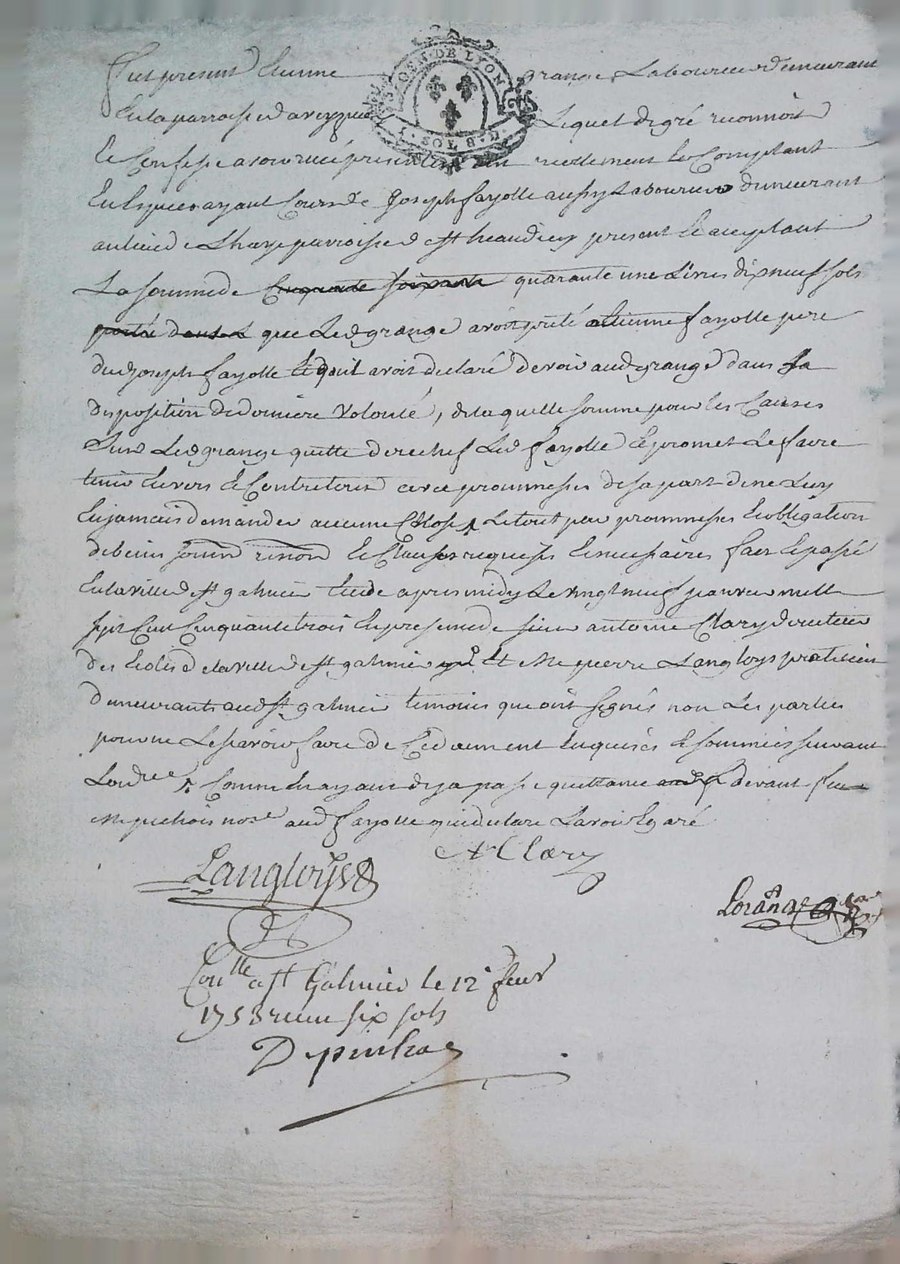 GEN·DE LYON
1 SOL 8 D.
fut present Etienne grange Laboureur demeurant
en la parroisse d aveyzieu Lequel de gré reconnoit
et Confesse avoir receu presentement reellement et Comptant
en Espece ayant Cours de Joseph fayolle aussy Laboureur demeurant
au lieu de parroisse de st heand icy present et aceptant
La somme de Cinquante soixante quarante une Livres dix neuf sols
que Led grange avoit preté a Etienne fayolle pere
dud Joseph fayolle et qu'il avoit declaré devoir aud grange dans sa
disposition de derniere volonté, de laquelle somme pour les Causes
susd Led grange quitte derechef Led fayolle et promet Le faire
tenir Envers et Contre tous avec prommesses de sa part de ne Luy
En jamais demander aucune Chose Le tout par prommesses obligation
de biens soumn renon et Clauses requises et necessaires fait et passé
en la ville de st galmier Etude apres midy Le vingt neuf janvier mille
sept Cent Cinquante trois En presence de sieur antoine Clary directeur
des Ecoles de la ville de st galmier Et Me pierre Langloys praticien
demeurants aud st galmier temoins que ont signés non Les parties
pour ne Le savoir faire de Ce duement Enquises et sommées suivant
Lordce Comme y ayant deja passé quittance devant feu
Me nore aud fayolle qui declare L'avoir Egaré
Langloys
A Clary
Conlle a st Galmier le 12e fevr
1753 receu six sols